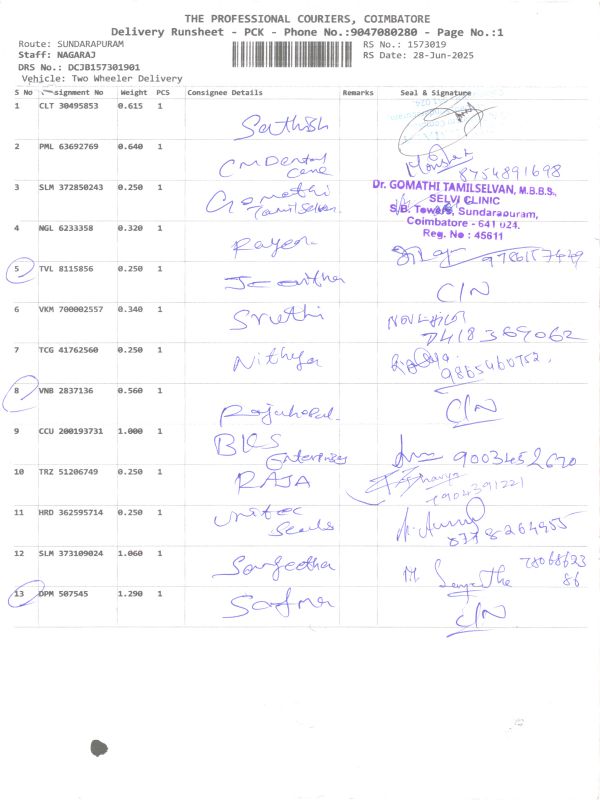 THE PROFESSIONAL COURIERS, COIMBATORE
Delivery Runsheet - PCK - Phone No.:9047080280 - Page No.:1
Route: SUNDARAPURAM RS No.: 1573019
Staff: NAGARAJ RS Date: 28-Jun-2025
DRS No.: DCJB157301901
Vehicle: Two Wheeler Delivery
S No Assignment No Weight PCS Consignee Details Remarks Seal & Signature
1 CLT 30495853 0.615 1
Sathish
2 PML 63692769 0.640 1
CM Dental
Care
8754891698
3 SLM 372850243 0.250 1
Gomathi
Tamilselvan.
Dr. GOMATHI TAMILSELVAN, M.B.B.S.,
SELVI CLINIC
S.B. Towers, Sundarapuram,
Coimbatore - 641 024.
Reg. No : 45611
4 NGL 6233358 0.320 1
5 TVL 8115856 0.250 1
C/N
6 VKM 700002557 0.340 1
Sruthi
7418369062
7 TCG 41762560 0.250 1
Nithya
9865460752.
8 VNB 2837136 0.560 1
Rajagopal.
C/N
9 CCU 200193731 1.000 1
BKS
Enterprises
9003452620
10 TRZ 51206749 0.250 1
RAJA
7904391221
11 HRD 362595714 0.250 1
Unitec
Seals
8778264955
12 SLM 373109024 1.060 1
Sangeetha
M. Sangetha
7806862386
13 DPM 507545 1.290 1
C/N